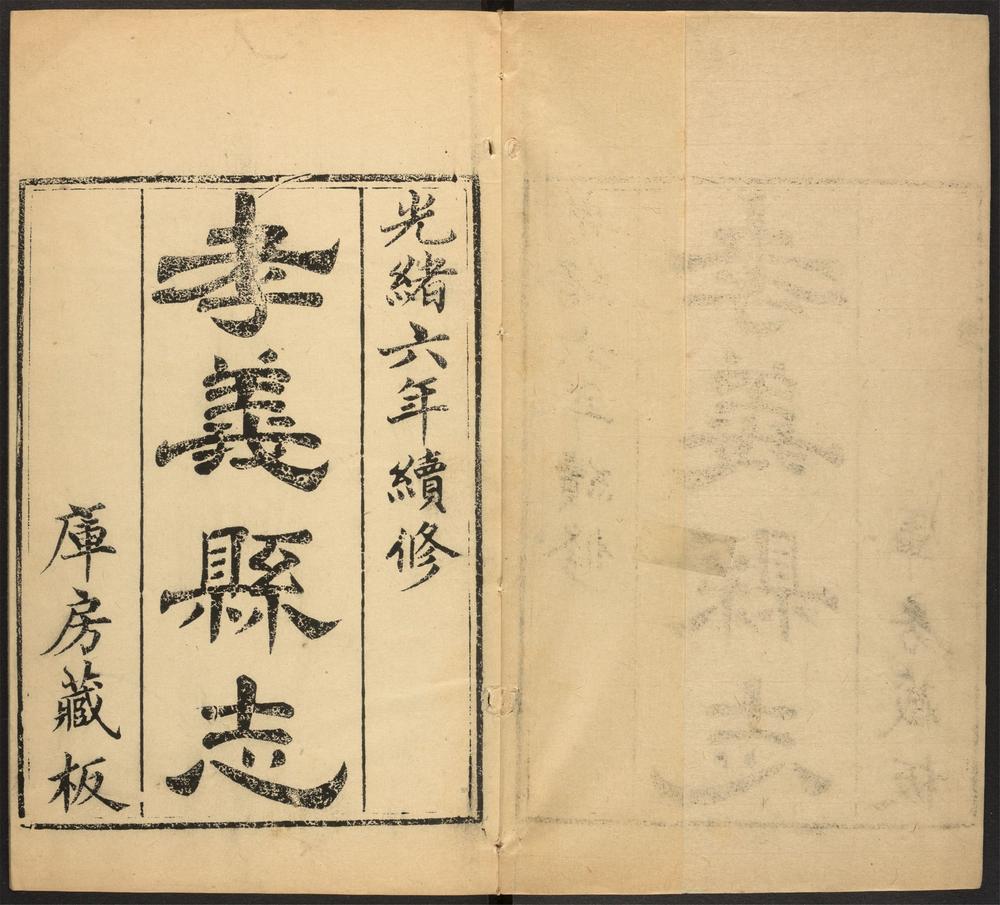 光緒六年續修
孝義縣志
庫房藏板